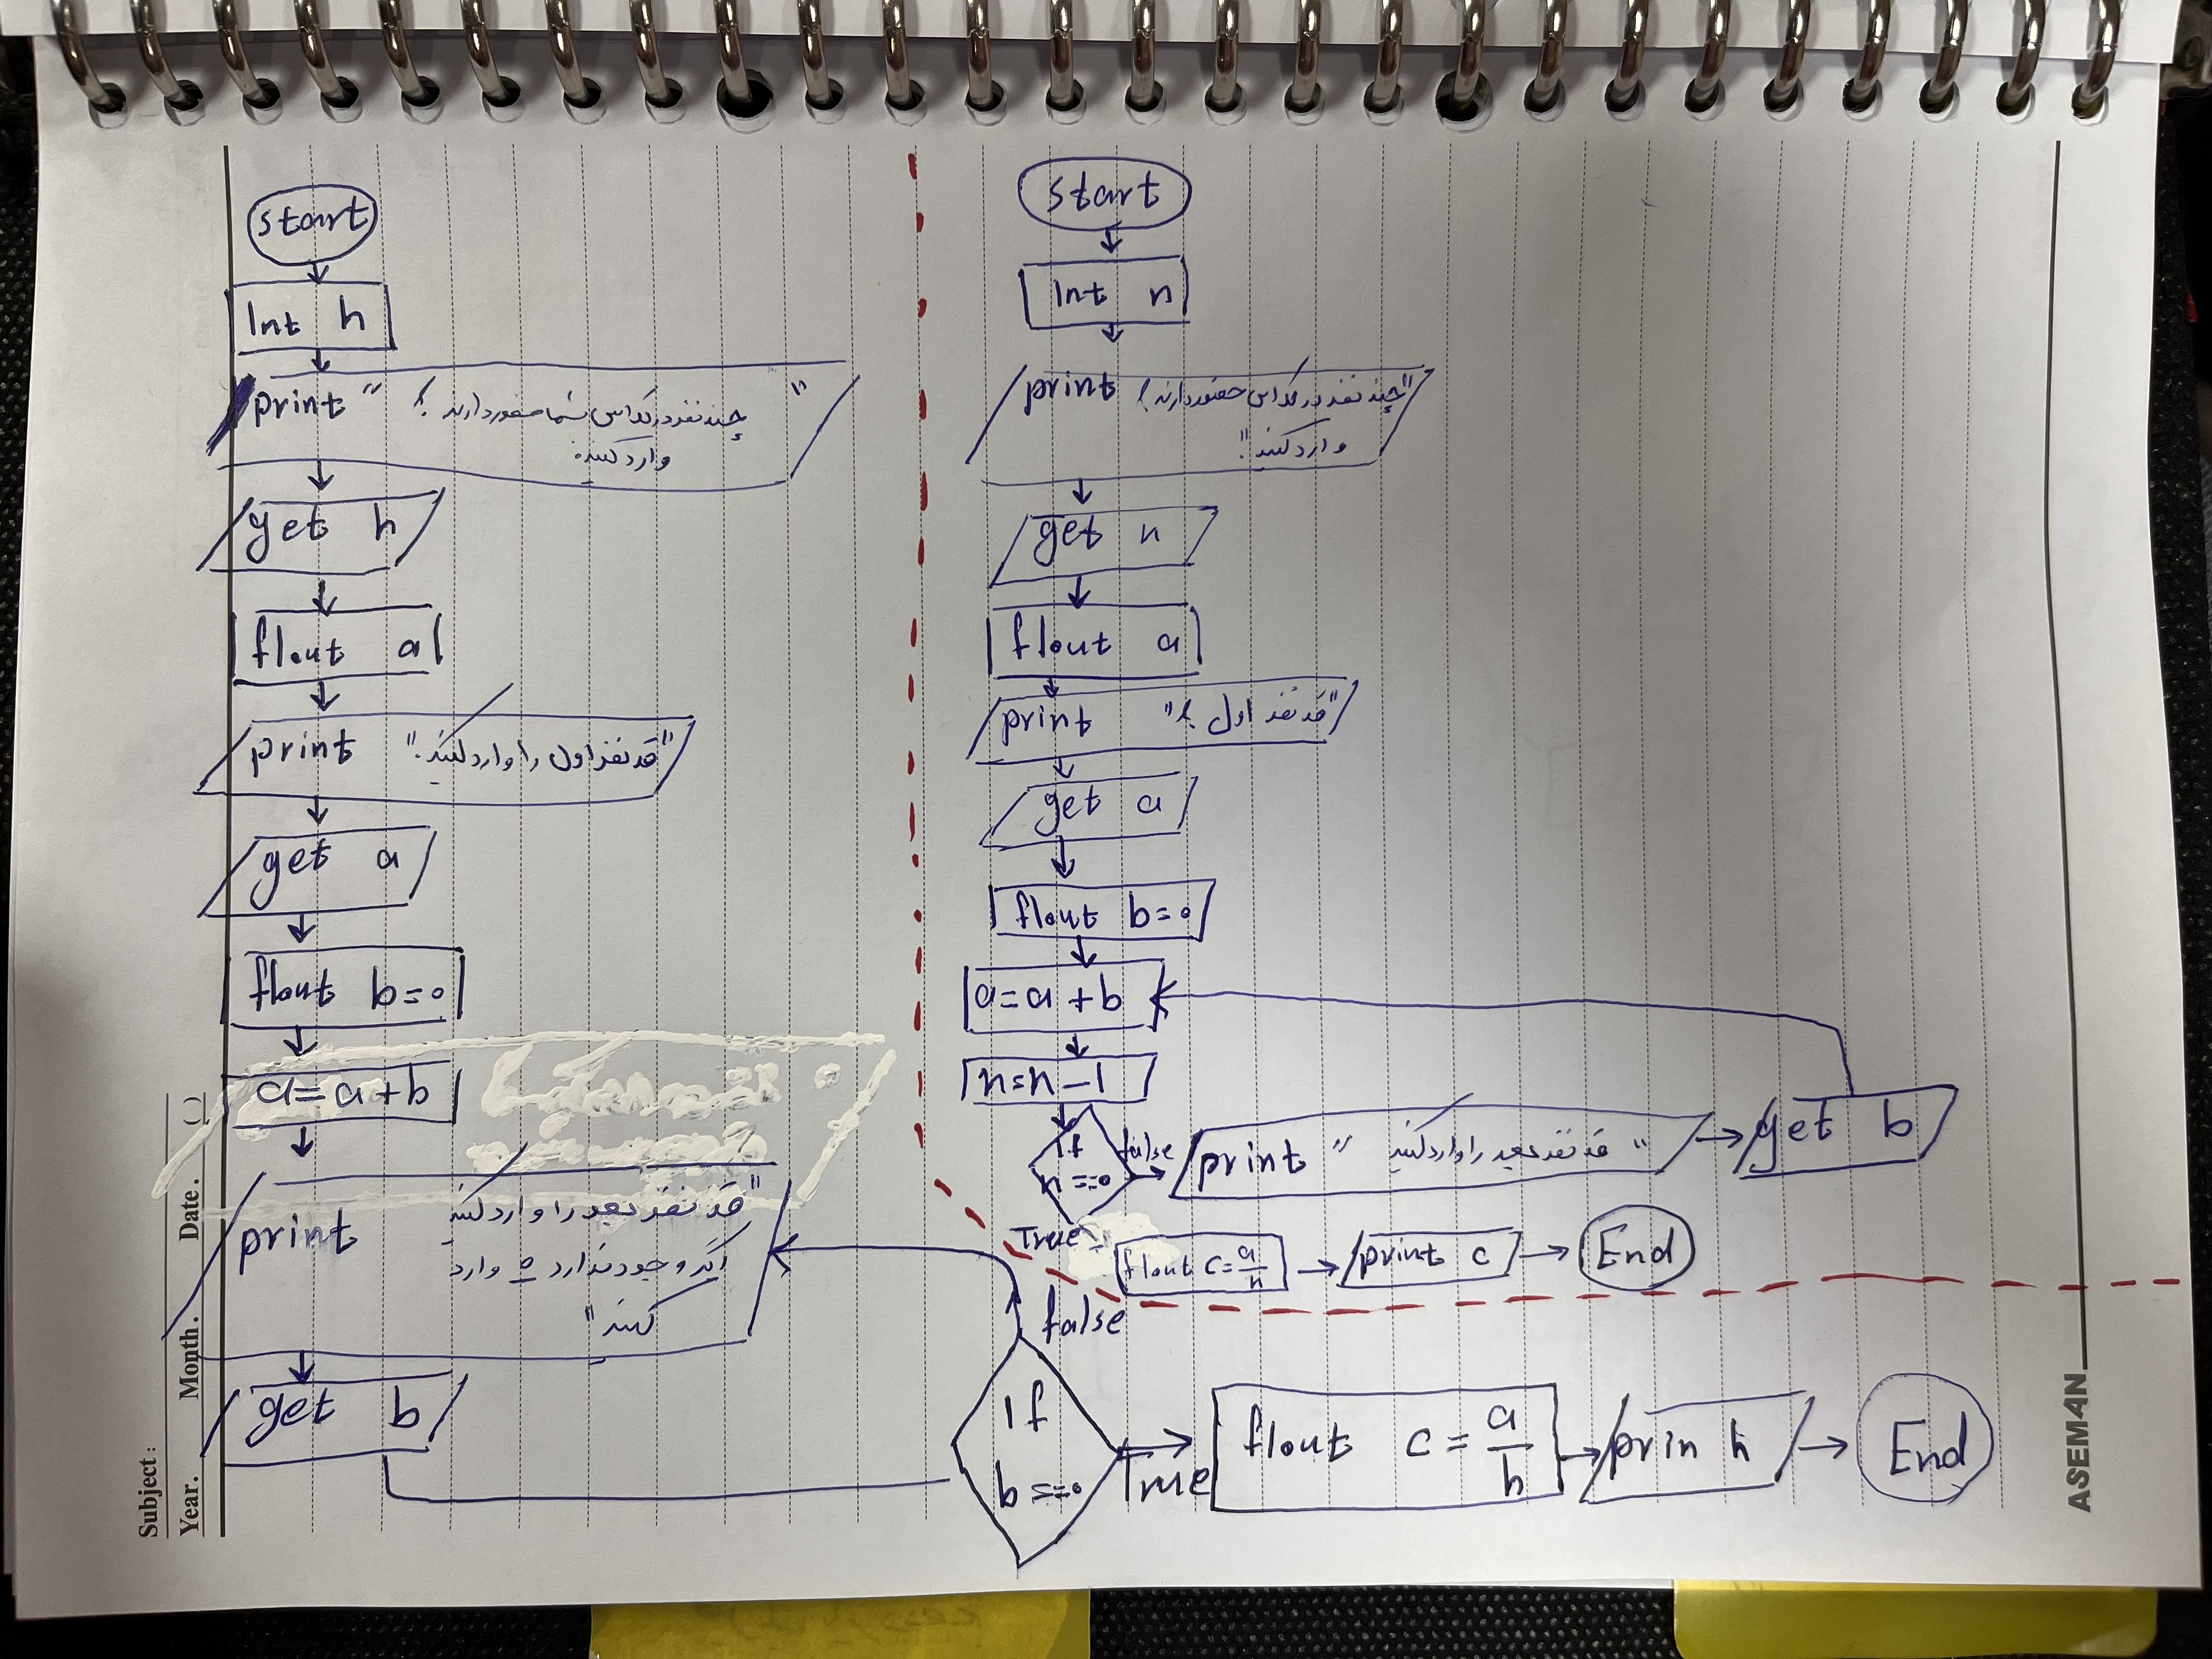 start
Int n
print " چند نفر در کلاس شما حضور دارند ؟ "
وارد کنید:
get n
flout a
print "قد نفر اول را وارد کنید."
get a
flout b=0
a=a+b
print "قد نفر بعد را وارد کنید
اگر وجود ندارد 0 وارد
کنید"
get b
If
b==0
false
True
flout c=a/n
prin n
End
start
Int n
print "چند نفر در کلاس حضور دارند؟
وارد کنید."
get n
flout a
print "قد نفر اول ؟"
get a
flout b=0
a=a+b
n=n-1
If
n==0
false
print " قد نفر بعد را وارد کنید "
get b
True
flout c=a/n
print c
End
Subject:
Year. Month. Date. ( )
ASEMAN